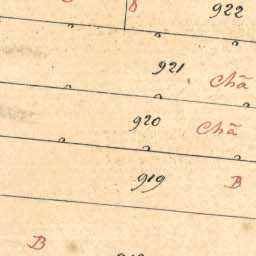 922
921 Chã
920 Chã
919 B
B